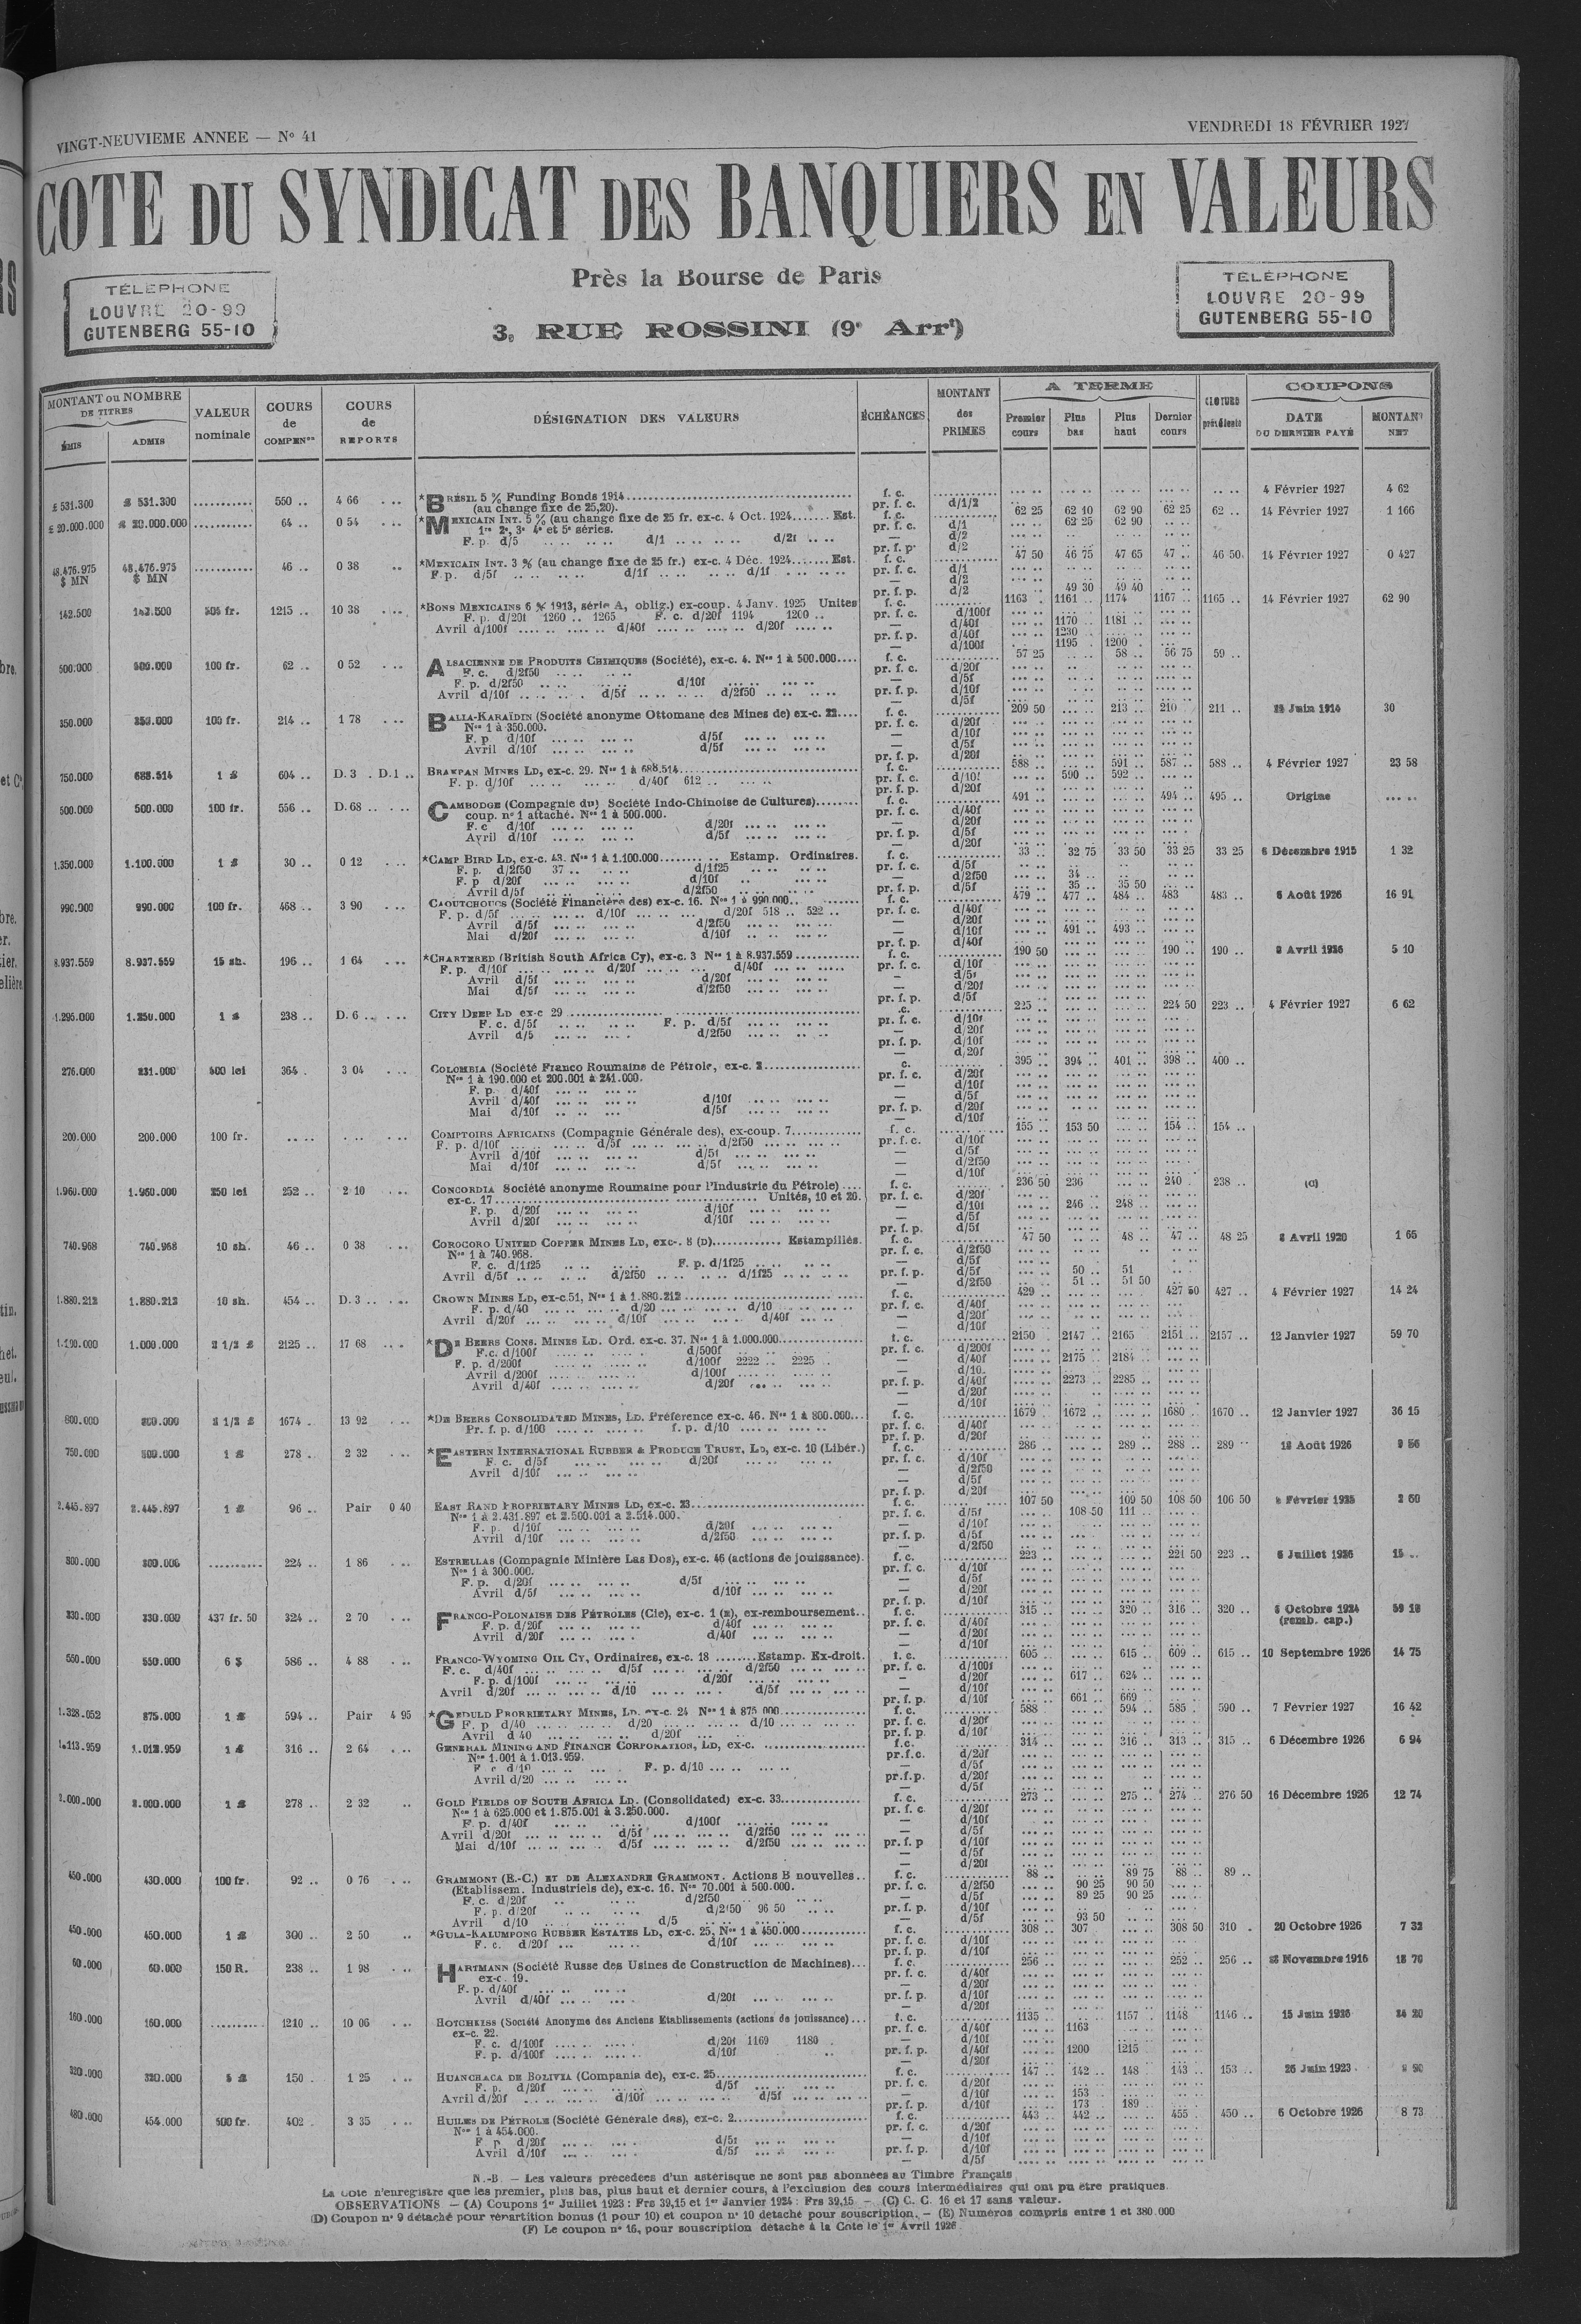 VINGT-NEUVIEME ANNEE — No 41
VENDREDI 18 FÉVRIER 1927
COTE DU SYNDICAT DES BANQUIERS EN VALEURS
Près la Bourse de Paris
3, RUE ROSSINI (9e Arrt)
TÉLÉPHONE
LOUVRE 20-99
GUTENBERG 55-10
TÉLÉPHONE
LOUVRE 20-99
GUTENBERG 55-10
MONTANT ou NOMBRE DE TITRES
ÉMIS ADMIS
VALEUR nominale
COURS de COMPENon
COURS de REPORTS
DÉSIGNATION DES VALEURS
ÉCHÉANCES
MONTANT des PRIMES
A TERME
Premier cours Plus bas Plus haut Dernier cours
CLOTURE précédente
COUPONS
DATE DU DERNIER PAYÉ
MONTANT NET
£ 531.300 £ 531.300 .......... 550 .. 4 66 *BRÉSIL 5 % Funding Bonds 1914 f. c. 4 Février 1927 4 62
(au change fixe de 25,20). pr. f. c. d/1/2
£ 20.000.000 £ 20.000.000 .......... 64 .. 0 54 *MEXICAIN INT. 5 % (au change fixe de 25 fr. ex-c. 4 Oct. 1924....... Est. f. c. 62 25 62 10 62 90 62 25 62 .. 14 Février 1927 1 166
1re 2e, 3e 4e et 5e séries. pr. f. c. d/1 62 25 62 90
F. p. d/5 d/1 d/2f — d/2
pr. f. p. d/2
48.476.975 $ MN 48.476.975 $ MN .......... 46 .. 0 38 *MEXICAIN INT. 3 % (au change fixe de 25 fr.) ex-c. 4 Déc. 1924....... Est. f. c. 47 50 46 75 47 65 47 .. 46 50 14 Février 1927 0 427
F. p. d/5f d/1f d/1f pr. f. c. d/1
— d/2
pr. f. p. d/2 49 30 49 40
142.500 142.500 505 fr. 1215 .. 10 38 *BONS MEXICAINS 6 % 1913, série A, oblig.) ex-coup. 4 Janv. 1925 Unités f. c. 1163 . 1161 .. 1174 1167 .. 1165 .. 14 Février 1927 62 90
F. p. d/20f 1260 .. 1265 F. c. d/20f 1194 1200 .. pr. f. c. d/100f
Avril d/100f d/40f d/20f — d/40f 1170 .. 1181 ..
pr. f. p. d/40f 1230
— d/100f 1195 . 1200 .
500.000 500.000 100 fr. 62 .. 0 52 ALSACIENNE DE PRODUITS CHIMIQUES (Société), ex-c. 4. Nos 1 à 500.000.... f. c. 57 25 58 .. 56 75 59 ..
F. c. d/2f50 pr. f. c. d/20f
F. p. d/2f50 d/10f — d/5f
Avril d/10f d/5f d/2f50 pr. f. p. d/10f
— d/5f
350.000 350.000 100 fr. 214 .. 1 78 BALIA-KARAÏDIN (Société anonyme Ottomane des Mines de) ex-c. 22.... f. c. 209 50 213 .. 210 211 .. Juin 1914 30
Nos 1 à 350.000. pr. f. c. d/20f
F. p d/10f d/5f — d/10f
Avril d/10f d/5f — d/5f
pr. f. p. d/20f
750.000 688.514 1 £ 604 .. D. 3 . D.1 .. BRAKPAN MINES LD, ex-c. 29. Nos 1 à 688.514 f. c. 588 .. 591 .. 587 .. 588 .. 4 Février 1927 23 58
F. p. d/10f d/40f 612 .. pr. f. c. d/10f 590 .. 592 ..
pr. f. p. d/20f
500.000 500.000 100 fr. 556 .. D. 68 .. CAMBODGE (Compagnie du) Société Indo-Chinoise de Cultures) f. c. 491 .. 494 .. 495 .. Origine
coup. no 1 attaché. Nos 1 à 500.000. pr. f. c. d/40f
F. c d/10f d/20f — d/20f
Avril d/10f d/5f pr. f. p. d/5f
— d/20f
1.350.000 1.100.000 1 £ 30 .. 0 12 *CAMP BIRD LD, ex-c. 43. Nos 1 à 1.100.000 Estamp. Ordinaires. f. c. 33 .. 32 75 33 50 33 25 33 25 6 Décembre 1915 1 32
F. p. d/2f50 37 .. d/1f25 pr. f. c. d/5f
F. p d/20f d/10f — d/2f50 34 ..
Avril d/5f d/2f50 pr. f. p. d/5f 35 .. 35 50
990.000 990.000 100 fr. 468 .. 3 90 CAOUTCHOUCS (Société Financière des) ex-c. 16. Nos 1 à 990.000 f. c. 479 .. 477 .. 484 .. 483 483 .. 6 Août 1926 16 91
F. p. d/5f d/10f d/20f 518 .. 522 .. pr. f. c. d/40f
Avril d/5f d/2f50 — d/20f
Mai d/20f d/10f — d/10f 491 .. 493 ..
pr. f. p. d/40f
8.937.559 8.937.559 15 sh. 196 .. 1 64 *CHARTERED (British South Africa Cy), ex-c. 3 Nos 1 à 8.937.559 f. c. 190 50 190 .. 190 .. Avril 1926 5 10
F. p. d/10f d/20f d/40f pr. f. c. d/10f
Avril d/5f d/20f — d/5f
Mai d/5f d/2f50 — d/20f
pr. f. p. d/5f
1.295.000 1.250.000 1 £ 238 .. D. 6 .. CITY DEEP LD ex-c 29 .c. 225 .. 224 50 223 .. 4 Février 1927 6 62
F. c. d/5f F. p. d/5f pr. f. c. d/10f
Avril d/5 d/2f50 — d/20f
pr. f. p. d/10f
— d/20f
276.000 231.000 500 lei 364 . 3 04 COLOMBIA (Société Franco Roumaine de Pétrole, ex-c. 2 c. 395 .. 394 .. 401 .. 398 .. 400 ..
Nos 1 à 190.000 et 200.001 à 241.000. pr. f. c. d/20f
F. p. d/40f — d/10f
Avril d/40f d/10f — d/5f
Mai d/10f d/5f pr. f. p. d/20f
— d/10f
200.000 200.000 100 fr. COMPTOIRS AFRICAINS (Compagnie Générale des), ex-coup. 7 f. c. 155 .. 153 50 154 .. 154 ..
F. p. d/10f d/5f d/2f50 pr. f. c. d/10f
Avril d/10f d/5f — d/5f
Mai d/10f d/5f — d/2f50
— d/10f
1.960.000 1.960.000 250 lei 252 .. 2 10 CONCORDIA Société anonyme Roumaine pour l'Industrie du Pétrole) f. c. 236 50 236 240 . 238 .. (C)
ex-c. 17 Unités, 10 et 20. pr. f. c. d/20f
F. p. d/20f d/10f — d/10f 246 .. 248 ..
Avril d/20f d/10f — d/5f
pr. f. p. d/5f
740.968 740.968 10 sh. 46 .. 0 38 COROCORO UNITED COPPER MINES LD, exc-. 8 (D) Estampillés. f. c. 47 50 48 .. 47 .. 48 25 Avril 1920 1 65
Nos 1 à 740.968. pr. f. c. d/2f50
F. c. d/1f25 F. p. d/1f25 — d/5f
Avril d/5f d/2f50 d/1f25 pr. f. p. d/5f 50 .. 51
— d/2f50 51 .. 51 50
1.880.212 1.880.212 10 sh. 454 .. D. 3 .. CROWN MINES LD, ex-c.51, Nos 1 à 1.880.212 f. c. 429 .. 427 50 427 .. 4 Février 1927 14 24
F. p. d/40 d/20 d/10 pr. f. c. d/40f
Avril d/20f d/10f d/40f — d/20f
— d/10f
1.190.000 1.000.000 2 1/2 £ 2125 .. 17 68 *DE BEERS CONS. MINES LD. Ord. ex-c. 37. Nos 1 à 1.000.000 f. c. 2150 . 2147 .. 2165 2151 .. 2157 .. 12 Janvier 1927 59 70
F.c. d/100f d/500f pr. f. c. d/200f
F. p. d/200f d/100f 2222 .. 2225 .. — d/40f 2175 .. 2184 ..
Avril d/200f d/100f — d/10.
Avril d/40f d/20f pr. f. p. d/40f 2273 .. 2285 ..
— d/20f
— d/10f
800.000 800.000 2 1/2 £ 1674 . 13 92 *DE BEERS CONSOLIDATED MINES, LD. Préférence ex-c. 46. Nos 1 à 800.000... f. c. 1679 1672 .. 1680 . 1670 .. 12 Janvier 1927 36 15
Pr. f. p. d/100 f. p. d/10 pr. f. c. d/40f
pr. f. p. d/20f
750.000 500.000 1 £ 278 .. 2 32 *EASTERN INTERNATIONAL RUBBER & PRODUCE TRUST, LD, ex-c. 10 (Libér.) f. c. 286 .. 289 .. 288 .. 289 .. Août 1926 56
F. c. d/5f d/20f pr. f. c. d/10f
Avril d/10f — d/2f50
— d/5f
pr. f. p. d/20f
2.445.897 2.445.897 1 £ 96 .. Pair 0 40 EAST RAND PROPRIETARY MINES LD, ex-c. 23 f. c. 107 50 109 50 108 50 106 50 Février 1925 60
Nos 1 à 2.431.897 et 2.500.001 a 2.514.000. pr. f. c. d/5f 108 50 111 ..
F. p. d/10f d/20f — d/10f
Avril d/10f d/2f50 pr. f. p. d/5f
— d/2f50
300.000 300.000 .......... 224 .. 1 86 ESTRELLAS (Compagnie Minière Las Dos), ex-c. 46 (actions de jouissance). f. c. 223 .. 221 50 223 .. Juillet 1926 15 ..
Nos 1 à 300.000. pr. f. c. d/10f
F. p. d/20f d/5f — d/5f
Avril d/5f d/10f — d/20f
pr. f. p. d/10f
330.000 330.000 437 fr. 50 324 .. 2 70 FRANCO-POLONAISE DES PÉTROLES (Cie), ex-c. 1 (E), ex-remboursement.. f. c. 315 .. 320 .. 316 .. 320 .. Octobre 1924 59 18
F. p. d/20f d/40f pr. f. c. d/40f (remb. cap.)
Avril d/20f d/40f — d/20f
— d/10f
550.000 550.000 6 $ 586 .. 4 88 FRANCO-WYOMING OIL CY, Ordinaires, ex-c. 18 Estamp. Ex-droit. f. c. 605 .. 615 .. 609 .. 615 .. 10 Septembre 1926 14 75
F. c. d/40f d/5f d/2f50 pr. f. c. d/100f
F. p. d/100f d/20f — d/20f 617 .. 624 ..
Avril d/20f d/10 d/5f — d/10f
pr. f. p. d/10f 661 .. 669
1.328.052 875.000 1 £ 594 .. Pair 4 95 *GEDULD PRORRIETARY MINES, LD. ex-c. 24 Nos 1 à 875 000 f. c. 588 594 .. 585 . 590 .. 7 Février 1927 16 42
F. p d/40 d/20 d/10 pr. f. c. d/20f
Avril d 40 d/20f pr. f. p. d/10f
1.113.959 1.013.959 1 £ 316 .. 2 64 GENERAL MINING AND FINANCE CORPORATION, LD, ex-c. f.c. 314 .. 316 .. 313 .. 315 .. 6 Décembre 1926 6 94
Nos 1.001 à 1.013.959. pr.f.c. d/20f
F. c d/10 F. p. d/10 — d/5f
Avril d/20 pr.f.p. d/20f
— d/5f
2.000.000 2.000.000 1 £ 278 .. 2 32 GOLD FIELDS OF SOUTH AFRICA LD. (Consolidated) ex-c. 33 f. c. 273 .. 275 .. 274 .. 276 50 16 Décembre 1926 12 74
Nos 1 à 625.000 et 1.875.001 à 3.250.000. pr. f. c d/20f
F. p. d/40f d/100f — d/10f
Avril d/20f d/5f d/2f50 — d/5f
Mai d/10f d/5f d/2f50 pr. f. p d/10f
— d/5f
— d/20f
450.000 430.000 100 fr. 92 .. 0 76 GRAMMONT (E.-C.) ET DE ALEXANDRE GRAMMONT. Actions B nouvelles.. f. c. 88 .. 89 75 88 .. 89 ..
(Etablissem. Industriels de), ex-c. 16. Nos 70.001 à 500.000. pr. f. c. d/2f50 90 25 90 50
F. c. d/20f d/2f50 — d/5f 89 25 90 25
F. p. d/20f d/2f50 96 50 pr. f. p. d/10f
Avril d/10 d/5 — d/5f 93 50
450.000 450.000 1 £ 300 .. 2 50 *GULA-KALUMPONG RUBBER ESTATES LD, ex-c. 25, Nos 1 à 450.000 f. c. 308 .. 307 308 50 310 . 20 Octobre 1926 7 32
F. c. d/20f d/10f pr. f. c. d/10f
pr. f. p. d/10f
60.000 60.000 150 R. 238 .. 1 98 HARTMANN (Société Russe des Usines de Construction de Machines)... f. c. 256 .. 252 .. 256 .. Novembre 1916 70
ex-c. 19. pr. f. c. d/40f
F. p. d/40f — d/20f
Avril d/40f d/20f pr. f. p. d/10f
— d/20f
160.000 160.000 .......... 1210 .. 10 06 HOTCHKISS (Société Anonyme des Anciens Etablissements (actions de jouissance)... f. c. 1135 .. 1157 . 1148 1146 .. 15 Juin 1926 20
ex-c. 22. pr. f. c. d/40f 1163
F. c. d/100f d/20f 1169 1180 . — d/10f
F. p. d/100f d/10f pr. f. p. d/40f 1200 1215
— d/20f
320.000 320.000 5 £ 150 . 1 25 HUANCHACA DE BOLIVIA (Compania de), ex-c. 25 f. c. 147 .. 142 .. 148 .. 143 .. 153 .. 26 Juin 1923 . 90
F. p. d/20f d/5f pr. f. c. d/20f
Avril d/20f d/10f d/5f — d/10f 153
pr. f. p. d/10f 173 189
480.000 454.000 500 fr. 402 . 3 35 HUILES DE PÉTROLE (Société Générale des), ex-c. 2 f. c. 443 .. 442 .. 455 . 450 .. 6 Octobre 1926 8 73
Nos 1 à 454.000. pr. f. c. d/20f
F p d/20f d/5f — d/10f
Avril d/10f d/5f pr. f. p. d/10f
— d/5f
N.-B. — Les valeurs précédées d'un astérisque ne sont pas abonnées au Timbre Français
La Cote n'enregistre que les premier, plus bas, plus haut et dernier cours, à l'exclusion des cours intermédiaires qui ont pu être pratiqués.
OBSERVATIONS — (A) Coupons 1er Juillet 1923 : Frs 39,15 et 1er Janvier 1924 : Frs 39,15 — (C) C. C. 16 et 17 sans valeur.
(D) Coupon no 9 détaché pour répartition bonus (1 pour 10) et coupon no 10 détaché pour souscription. — (E) Numéros compris entre 1 et 380.000
(F) Le coupon no 16, pour souscription détaché à la Cote le 1er Avril 1926.